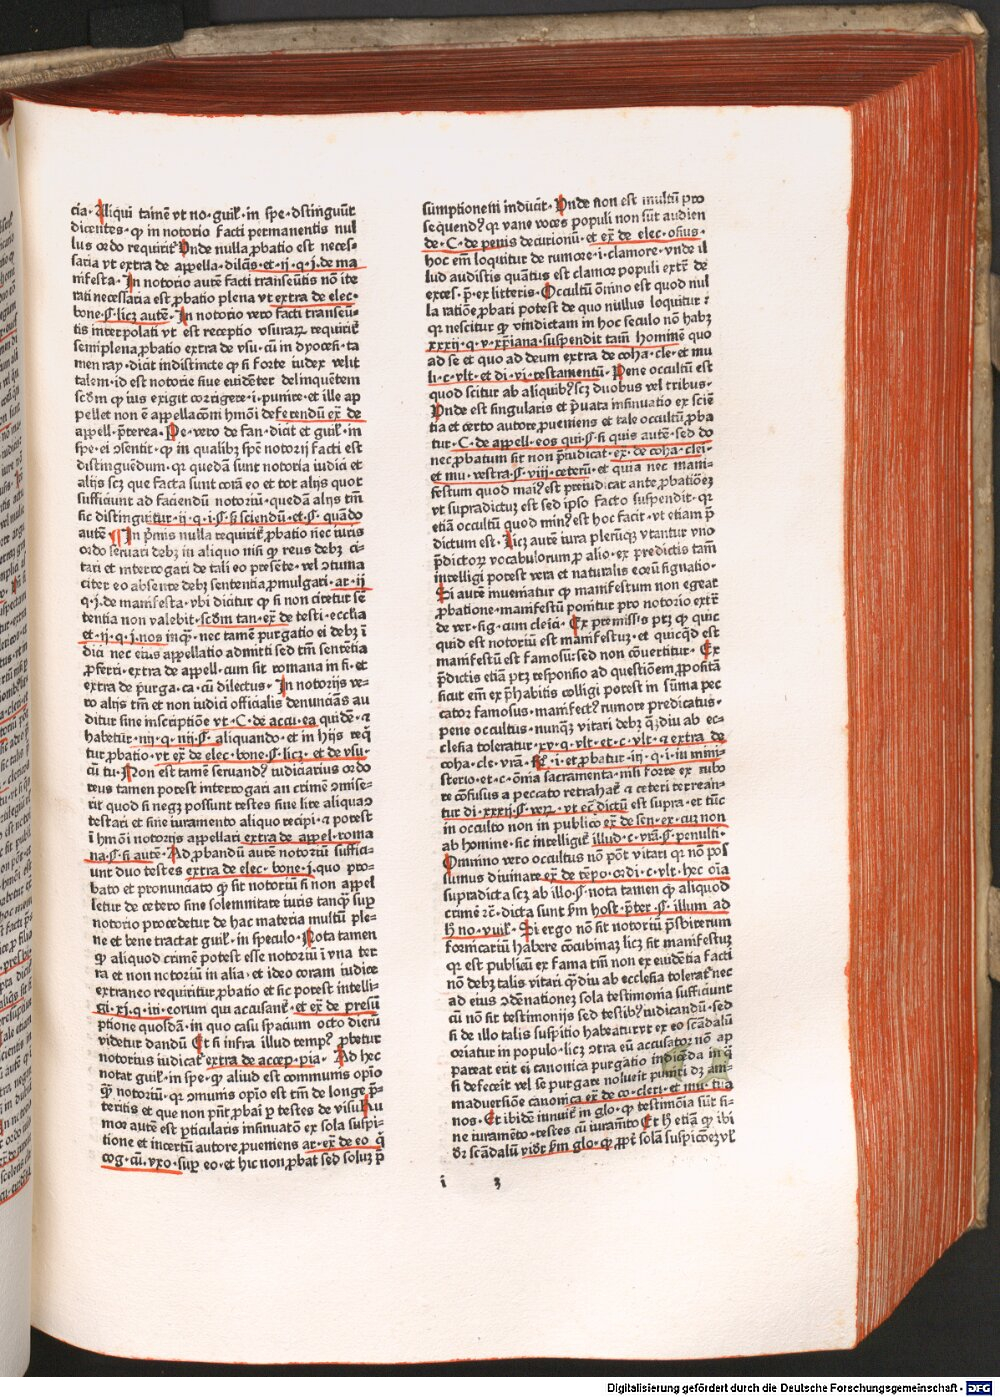 cia· Aliqui tamẽ vt no· guil̛· in spe· dſtinguũt
dicentes· ꝙ in notorio facti permanentis nul
lus ordo requirit᷑ Vnde nulla ꝓbatio est neces⸗
saria vt extra de appella· dilcũs· et· ij· q· j· de ma
nifesta· In notorio autẽ facti transeũtis nõ ite
rati necessaria est ꝓbatio plena vt extra de elec·
bone·§· licꝫ autẽ· In notorio vero facti transeũ⸗
tis interpolati vt est receptio vsuraꝝ requirit᷑
semiplena ꝓbatio extra de vsu· cũ in dyocesi· ta
men ray· dicit indistincte ꝙ si forte iudex velit
talem· id est notorie siue euidẽter delinquẽtem
scd̃m ꝙ ius exigit corrigere· i· punire et ille ap
pellet non ẽ appellacõni hmõi deferendũ ex̃ de
appell· p̃terea· Pe· vero de fan· dicit et guil̛· in
spe· ei ɔsentit· ꝙ in qualibꝫ spẽ notorij facti est
distinguẽdum· ꝙ quedã sunt notoria iudici et
alijs scꝫ que facta sunt corã eo et tot alijs quot
sufficiunt ad faciendũ notoriũ· quedã alijs tm̃
sic distinguitur· ij· q· i·§· si sciendũ· et·§· quãdo
autẽ· ¶ In p̃mis nulla requirit᷑ ꝓbatio nec iuris
ordo seruari debꝫ in aliquo nisi ꝙ reus debꝫ ci⸗
tari et interrogari de tali eo presẽte· vel ɔtuma
citer eo absente debꝫ sententia ꝓmulgari· ar· ij
q· j· de manifesta· vbi dicitur ꝙ si non citetur sẽ
tentia non valebit· scd̃m tan· ex̃ de testi· ecclĩa
et· ij· q· j· nos inqꝫ· nec tamẽ purgatio ei debꝫ ĩ
dici nec eius appellatio admitti sed tm̃ sentẽtia
ꝓferri· extra de appell· cum sit romana in fi· et
extra de purga· ca· cũ dilectus· In notorijs ve⸗
ro alijs tm̃ et non iudici officialis denunciãs au
ditur sine inscriptiõe vt· C· de accu· ea quidẽ· ⁊
habetur· iiij· q· iiij·§· aliquando· et in hijs req̃
tur ꝓbatio· vt ex̃ de elec· bone·§· licꝫ· et de vsu·
cũ tu· Non est tamẽ seruandꝰ iudiciarius ordo
reus tamen potest interrogari an crimẽ ɔmise⸗
rit quod si negꝫ possunt testes sine lite aliqua ɔ
testari et sine iuramento aliquo recipi· ⁊ potest
ĩ hmõi notorijs appellari extra de appel· roma
na·§· si autẽ· Ad ꝓbandũ autẽ notoriũ suffici⸗
unt duo testes extra de elec· bone· j· quo pro⸗
bato et pronunciato ꝙ sit notoriũ si non appel
letur de cetero sine solemnitate iuris tanqꝫ sup̲
notorio procedetur de hac materia multũ ple⸗
ne et bene tractat guil̛· in speculo· Nota tamen
ꝙ aliquod crimẽ potest esse notoriũ ĩ vna ter
ra et non notoriũ in alia· et ideo coram iudice
extraneo requiritur ꝓbatio et sic potest intelli⸗
gi· xj· q· iii· eorum qui accusant᷑· et ex̃ de presũ
ptione quosdã· in quo casu spacium octo dierũ
videtur dandũ Et si infra illud tempꝰ ꝓbetur
notorius iudicat᷑ extra de accep· pia· Ad hec
notat guil̛· in spe· ꝙ aliud est communis opĩo
qꝫ notoriũ· qꝛ ɔmunis opĩo est tm̃ de longe p̃⸗
teritis et que non pñt ꝓbai p̲ testes de visu Ru
mor autẽ est p̲ticularis infinuatõ ex sola suspi⸗
tione et incertũ autore ꝓueniens ar· ex̃ de eo q̃
cog· cũ· vxo· sup̲ eo· et hic non ꝓbat sed soluꝫ p̃
sumptionem inducit· Vnde non est multũ pro
sequendꝰ qꝛ vane voces populi non sũt audien
de· C· de penis decurionũ· et ex̃ de elec· osius·
hoc em̃ loquitur de rumore· i· clamore· vnde il
lud audistis quãtus est clamor populi extr̃ de
exces· p̃· ex litteris· Occultũ om̃ino est quod nul
la ratiõe ꝓbari potest de quo nullus loquitur ⁊
qꝛ nescitur ꝙ vindictam in hoc seculo nõ habꝫ
xxxij· q· v· xp̃iana· suspendit tam̃ hominẽ quo
ad se et quo ad deum extra de coha· cle· et mu
li· c· vlt· et di· vi· testamentũ· Pene occultũ est
quod scitur ab aliquibꝰ scꝫ duobus vel tribus·
Vnde est singularis et p̃uata insinuatio ex sciẽ
tia et certo autore ꝓueniens et tale occultũ ꝓba
tur· C· de appell· eos qui·§· si quis autẽ· sed do
nec ꝓbatum sit non p̃iudicat· ex̃· de coha· clei·
et mu· vestra·§· viij· ceterũ· et quia nec mani⸗
festum quod maiꝰ est preiudicat ante ꝓbatiõeꝫ
vt supradictuꝫ est sed ipso facto suspendit· qꝛ
etiã occultũ quod minꝰ est hoc facit· vt etiam p̃
dictum est· Licꝫ autẽ iura plerũqꝫ vtantur vno
p̃dictoꝝ vocabulorum p̲ alio· ex predictis tam̃
intelligi potest vera et naturalis eoꝝũ signatio·
Si autẽ inueniatur ꝙ manifestum non egeat
ꝓbatione· manifestũ ponitur pro notorio extr̃
de ver· sig· cum oleĩci· Ex premissis ptꝫ ꝙ quic
quid est notoriũ est manifestuꝫ· et quicqͥd est
manifestũ est famosũ: sed non ɔuertitur· Ex
p̃dictis etiã ptꝫ responsio ad questiõem ꝓposĩtã
sicut em̃ ex p̃habitis colligi potest in sum̃a pec
cator famosus· manifectꝰ rumore predicatus·
pene occultus· nunqꝫ vitari debꝫ qꝫdiu ab ec⸗
clesia toleratur· xv· q· vlt· et· c· vlt· ⁊ extra de
coha· cle· vr̃a·§· i· et ꝓbatur· iii· q· i· in mini⸗
sterio· et· c· õmia sacramenta· nisi forte ex rubo
re cõfusus a peccato retrahat᷑ ⁊ ceteri terrean⸗
tur di· xxxij·§· veꝝ· vt ec̃ dictũ est supra· et tũc
in occulto non in publico ex̃ de sen· ex· cuꝫ non
ab homine· sic intelligit᷑ illud· c· vr̃a·§· penult·
Omnino vero occultus nõ põt vitari qꝛ nõ pos
sumus diuinare ex̃ de tẽpo· ordi· c· vlt· hec oĩa
supradicta scꝫ ab illo·§· nota tamen ꝙ aliquod
crimẽ ⁊c̃· dicta sunt s̃m host· p̃ter·§· illum ad
h̃ no· vuil̛· Si ergo nõ sit notoriũ p̃sbiterum
fornicariũ habere cõcubinaꝫ licꝫ sit manifestuꝫ
qꝛ est publicũ ex fama tm̃ non ex euidẽtia facti
nõ debꝫ talis vitari qꝫdiu ab ecclesia tolerat᷑ nec
ad eius ɔdẽnationeꝫ sola testimonia sufficiunt
cũ nõ sit testimonijs sed testibꝰ iudicandũ· sed
si de illo talis suspitio habeatur vt ex eo scãdalũ
oriatur in populo· licꝫ ɔtra eũ accusator nõ ap
pareat erit ei canonica purgatio indicẽda in q̃
si defecerit vel se purgare noluerit puniri dꝫ ani⸗
maduersiõe canonica ex̃ de co· cleri· et mu· tua
nos· Et ibidẽ innuit᷑ in glo· ꝙ testimõia sũt si⸗
ne iuramẽto· testes cũ iuram̃to Et h̃ etiã ꝙ ibi
dr̃ scãdalũ vidr̃ s̃m glo· ꝙ ꝓpt̃ solã suspicõeꝫ vl̛
i 3
Digitalisierung gefördert durch die Deutsche Forschungsgemeinschaft - DFG